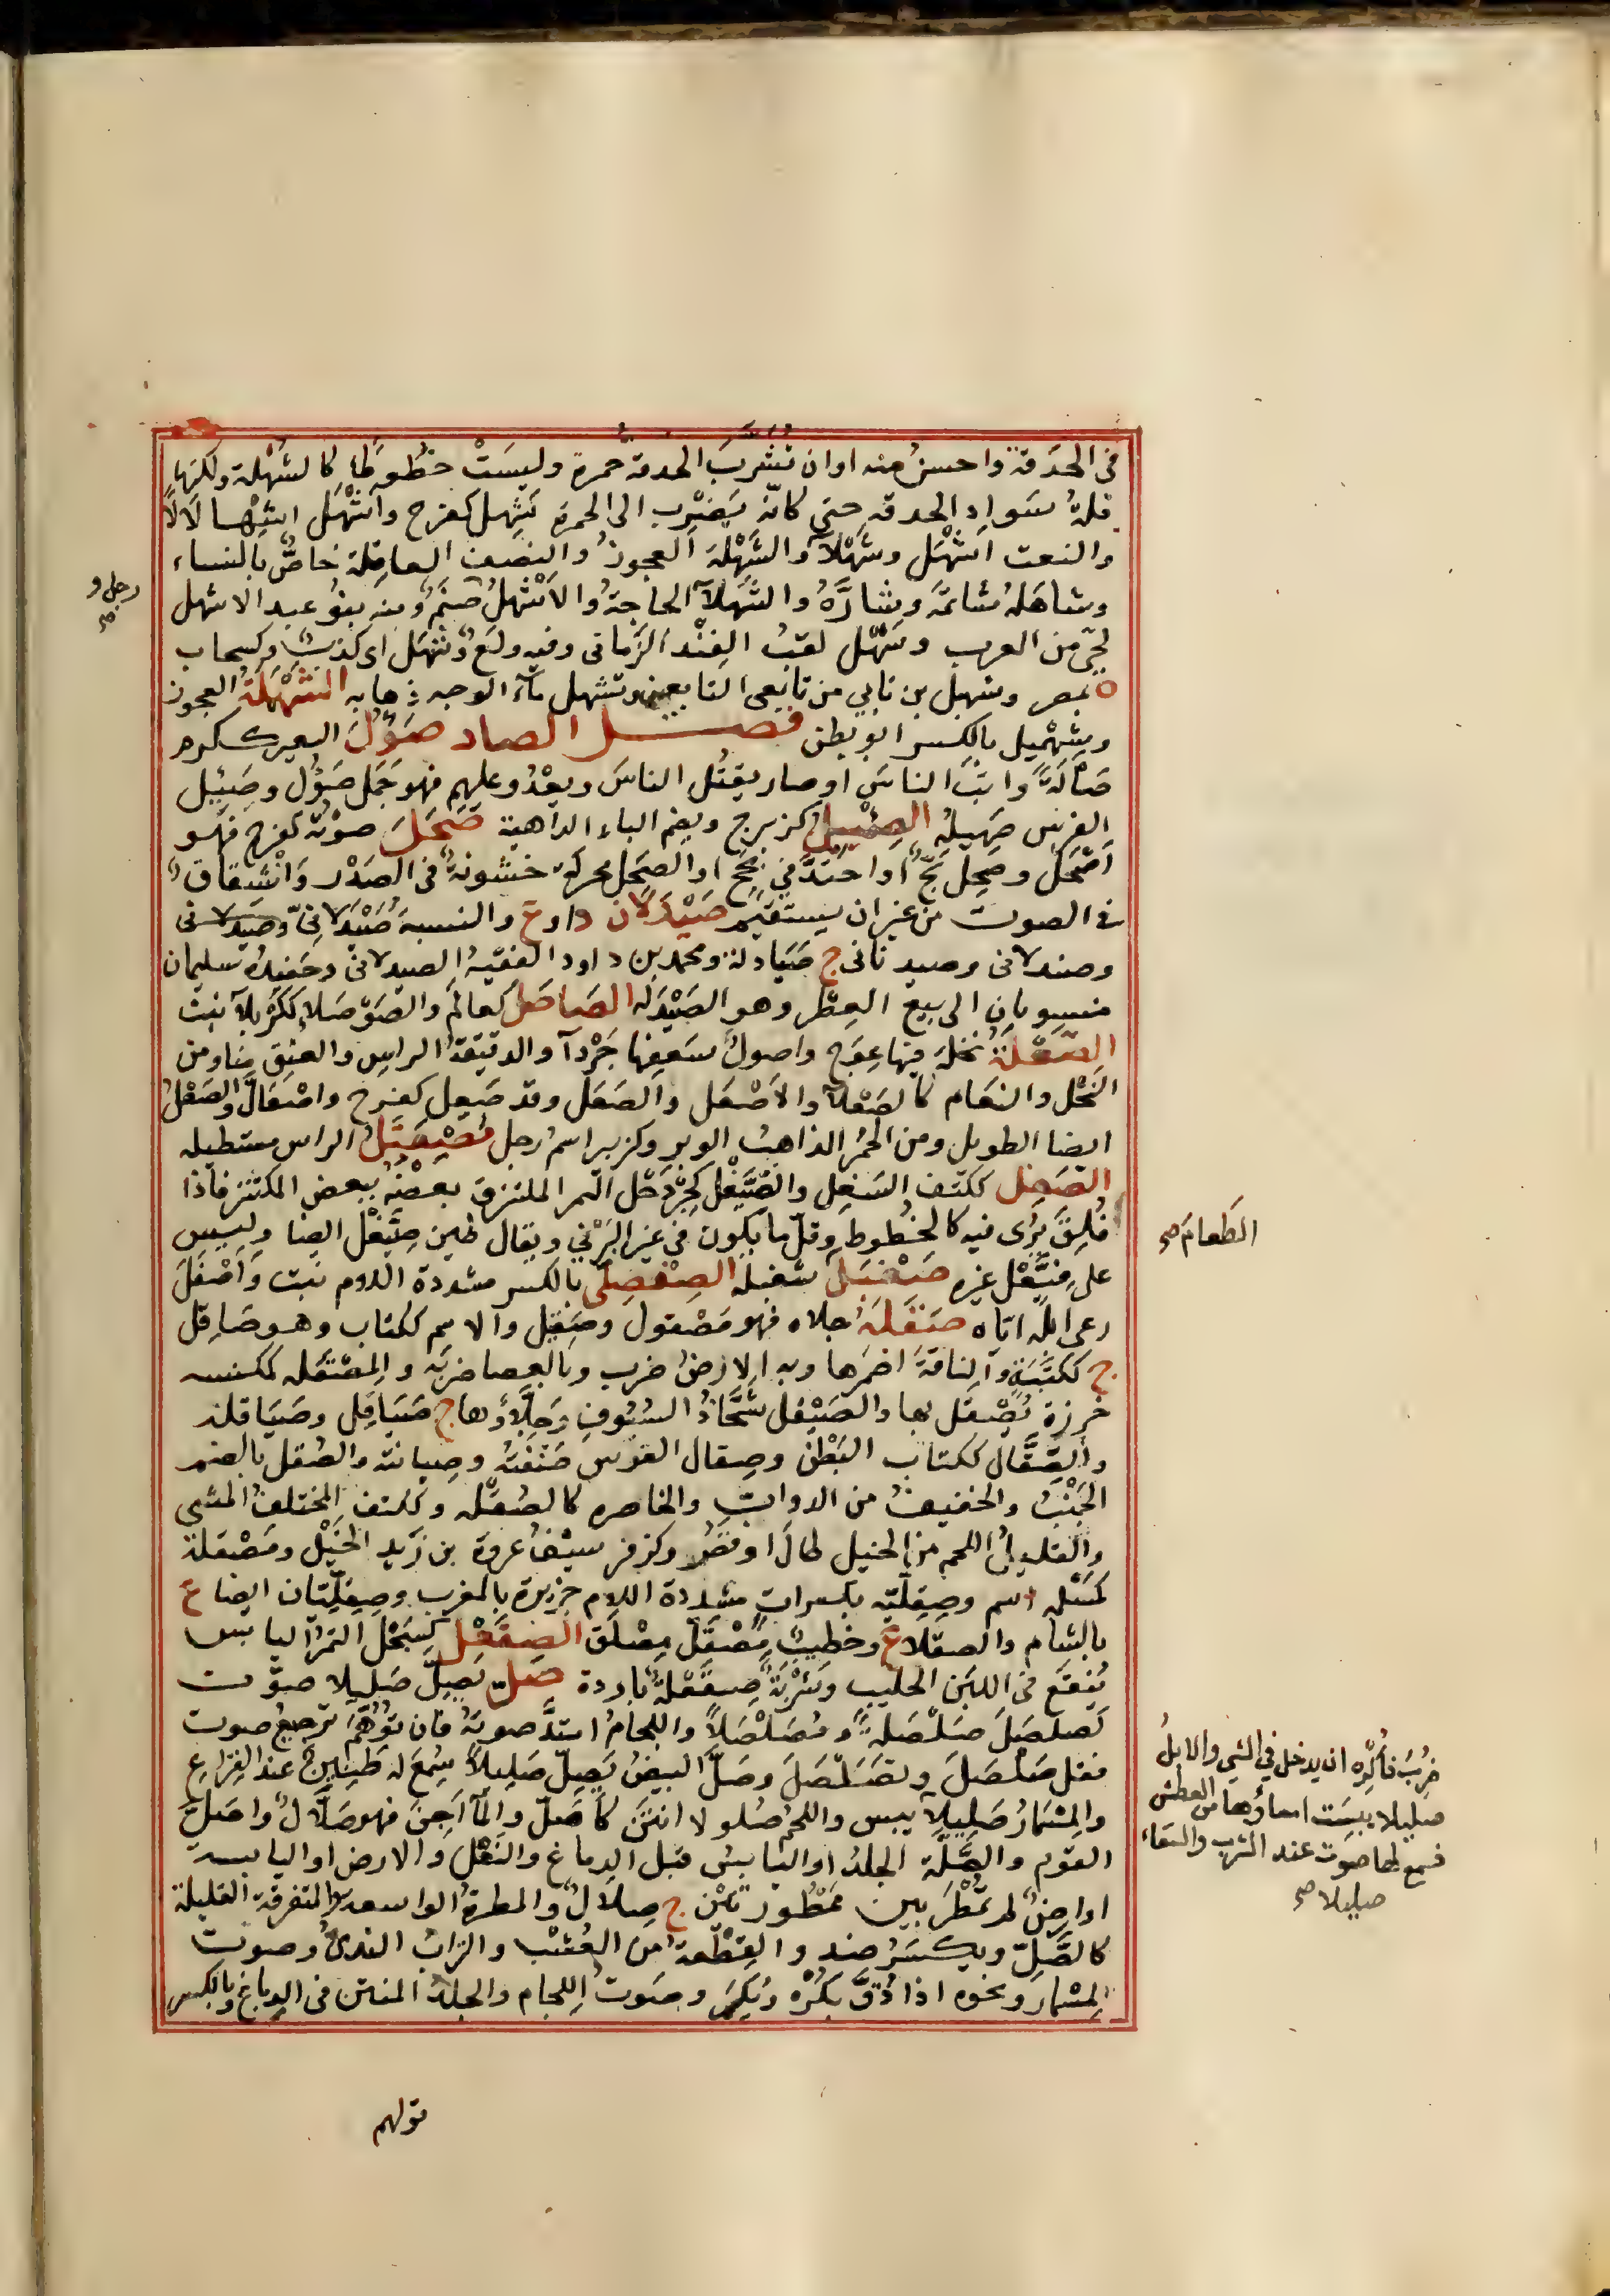 في الحدقة واحسن منه او ان تُشْرَبَ الحدقة حمرة وليسَتْ خطُوطا كالشهْلة ولكنها
قلة سَوادِ الحدقة حتى كانّه يَضْرِب الى الحمرة شَهِل كفرح واشْهَل اشهلالا
والنعت اشْهَل وشَهْلآ والشَهْلَة العجوزُ والنصف العاقِلة خاصٌّ بالنساء
وشاهَلهُ شاتمَه وشارَّهُ والشَهْلآ الحاجةُ والاَشْهلُ صنَمٌ ومنه بنُو عبد الاشهل
رجل و صح
لحيّ من العرب وشَهْل لقبُ الفِنْد الزِمّاني وفيه ولَعٌ وشَهَل اى كذبٌ وكسحاب
ة بمصر وشهيل بن نابي من تابعى التابعين وتشهل مآء الوجه ذهابه الشَهْمَلَةُ العجوز
وشِهْمِيل بالكسر ابو بطن فصل الصاد صَؤُلَ البعير ككرم
صَآلَةً واثبَ الناسَ او صار يقتُل الناسَ ويعْدُو عليهم فهو جَمَل صَؤُل وصَئِيل
الفرسِ صَهِيلُه الصِئْبِل كزبرج ويضم الباء الداهية صَحِلَ صوْتُه كفرح فهو
اَصْحَلُ وصَحِل بَحَّ او احْتدَّ في بَحَح او الصحَل محركة خشونةٌ في الصَدْر وَانْشقاقٌ
في الصوت من غير ان يستقيم صَيْدَلان د او ع والنسبة صَيْدَلاَنِيّ وصَيدلانى
وصندلانى وصيدنانى ج صَيَادلة ومحمد بن داود الفقيهُ الصيدلانى وحَفيدُه سليمان
منسوبان الى بيع العِطْر وهو الصَيْدَلَه الصَاصَلُ كعالَم والصَوْصَلاء ككَرْبلآ نبت
الصَعْلَةُ نخلة فيها عِوَج واصولُ سَعَفِها جَرْدآ والدقيقةُ الراسِ والعنق منا ومن
النَخْل والنعَام كالصَعْلآ والاَصْعَل والصَعَل وقد صَعِل كفرح واصْعَالَّ والصَعْلُ
ايضا الطويل ومن الحُمُر الذاهبُ الوبر وكزبير اسم رجل الراس مستطيله
الصَغِل ككتف السَغِل والصِيَّغْل كجِرْدَحْل التمر الملتزق بعضُه ببعض المكتنز فاذا
فُلِقَ يُرَى فيه كالخُطُوط وقلّ ما يكون في غير البَرْني ويقال طين صِيَّغْل ايضا وليس
على فِيَّعْل غيره صَغْبَلَ الطعامَ صح سغبله الصِفْصِلّ بالكسر مشددة اللام نبت وَاَصْفَلَ
رعى ابله ايّاه صَقَلَهُ جلاه فهو مَصْقول وصَقِيل والاسم ككتاب وهو صَاقِل
ج ككَتَبَةٍ والناقة اضمَرها وبه الارضَ ضرب وبالعصا ضربَه والمِصْقَله كمكنسه
خرزة يُصْقَل بها والصَيْقل شَحَّاذُ السُيُوفِ وَجَلّاؤُها ج صَيَاقِل وصَيَاقله
والصِقَال ككتاب البَطْن وصِقال الفَرَس صَنْعَتُه وصيانته والصُقل بالضم
الجَنْبُ والخفيفُ من الدوابِ والخاصره كالصُقْله وككتف المختلفُ المشي
والقليلُ اللحمِ من الخيل طالَ او قصُر وكزفر سيْفُ عروة بن زَيد الخَيْل ومَصْقلة
كمَسْله اسم وصِقِلّيَّه بكسرات مشددة اللام جزيرة بالمغرب وصِقِلّيَّتان ايضا ع
بالشام والصقلا ع وخطيبٌ مِصْقَلٌ مِصْلَق الصِقَعْل كسِبَحْل التمرُ اليابس
يُنقَع في اللبَن الحليب وشَرْبَةٌ صِقَعْلَةٌ باردة صَلَّ يَصِلُّ صَلِيلا صوَّت
كصَلصَلَ صَلْصَلةً وَ مُصَلْصَلاً واللجامُ امتدَّ صوتهُ فان تُوُهِّمَ ترجيعُ صوت
فقل صَلْصَلَ وتصَلْصَلَ وصَلَّ البيضُ يَصِلّ صَلِيلاً سُمِعَ له طَنِينٌ عند القِراع
والمِسْمارُ صَلِيلاً ضُرِبَ فاُكْرِهَ ان يدخل في الشي والابلُ
صليلا يبسَت امعاؤُها من العطش
فسمع لها صوت عند الشرب والسقاء
صليلا صح
يبس واللحمُ صُلُولا انتنَ كاَصَلَّ والمآ اَجِنَ فهو صَلَّالٌ واَصَلَّ
القِدَم والصَلَّة الجلدُ او اليَابسُ قبل الدِباغ والنَعْل والارض او اليابسة
او ارضٌ لم تُمْطَرْ بين مَمْطُورَتَيْن ج صِلالٌ والمطرة الواسعه والمتفرقة القليلة
كالصَّلِّ ويكسَرُ ضد والقِطْعةُ من العُشْب والترابُ الندىُّ وصوت
المِسْمار ونحوه اذا دُقَّ بكُرْه وَيُكسَر وصَوتُ اللجام والجلدُ المنتن في الدِباغ وبالكسر
قولهم